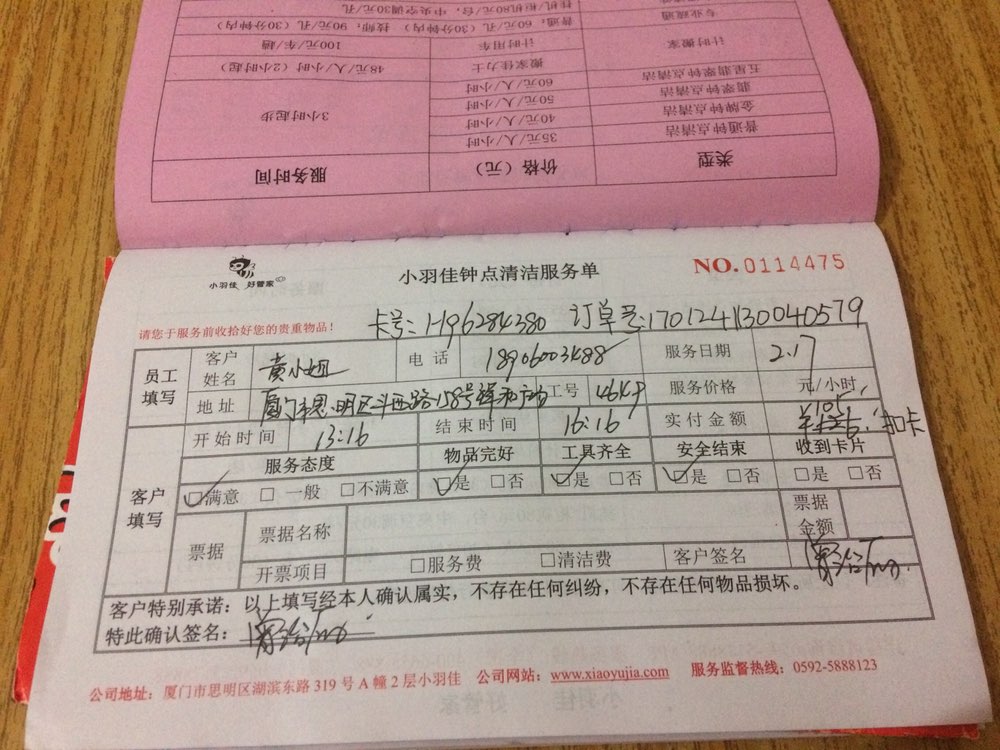 挂机/柜机80元/台，中央空调30元/孔
专业疏通 普通：60元/孔（30分钟内） 技师：90元/孔（30分钟内）
计时搬家 计时用车 100元/车/趟
搬家佳力士 48元/人/小时（2小时起）
五星翡翠钟点清洁 60元/人/小时 3小时起步
翡翠钟点清洁 50元/人/小时
金牌钟点清洁 40元/人/小时
普通钟点清洁 35元/人/小时
类型 价格（元） 服务时间
小羽佳 好管家
小羽佳钟点清洁服务单
NO.0114475
请您于服务前收拾好您的贵重物品！
卡号：1-196284380 订单号：170124130040579
员工填写 客户姓名 黄小姐 电话 18906003488 服务日期 2.17
地址 厦门市思明区斗西路158号 广场 工号 服务价格 元/小时
开始时间 13:16 结束时间 16:16 实付金额 扣卡
客户填写 服务态度 物品完好 工具齐全 安全结束 收到卡片
□满意 □一般 □不满意 □是 □否 □是 □否 □是 □否 □是 □否
票据 票据名称 票据金额
开票项目 □服务费 □清洁费 客户签名
客户特别承诺：以上填写经本人确认属实，不存在任何纠纷，不存在任何物品损坏。
特此确认签名：
公司地址：厦门市思明区湖滨东路319号A幢2层小羽佳 公司网站：www.xiaoyujia.com 服务监督热线：0592-5888123